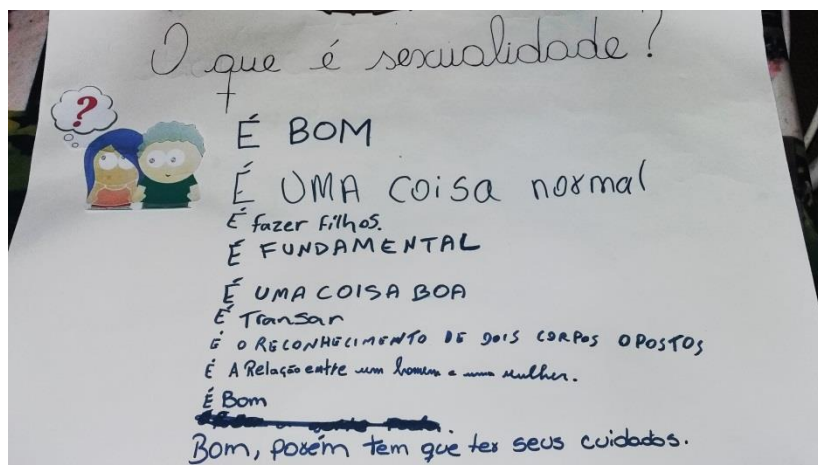 O que é sexualidade?
?
É BOM
É UMA COISA normal
É fazer filhos.
É FUNDAMENTAL
É UMA COISA BOA
É Transar
É O RECONHECIMENTO DE DOIS CORPOS OPOSTOS
É A Relação entre um homem e uma mulher.
É Bom
Bom, porém tem que ter seus cuidados.